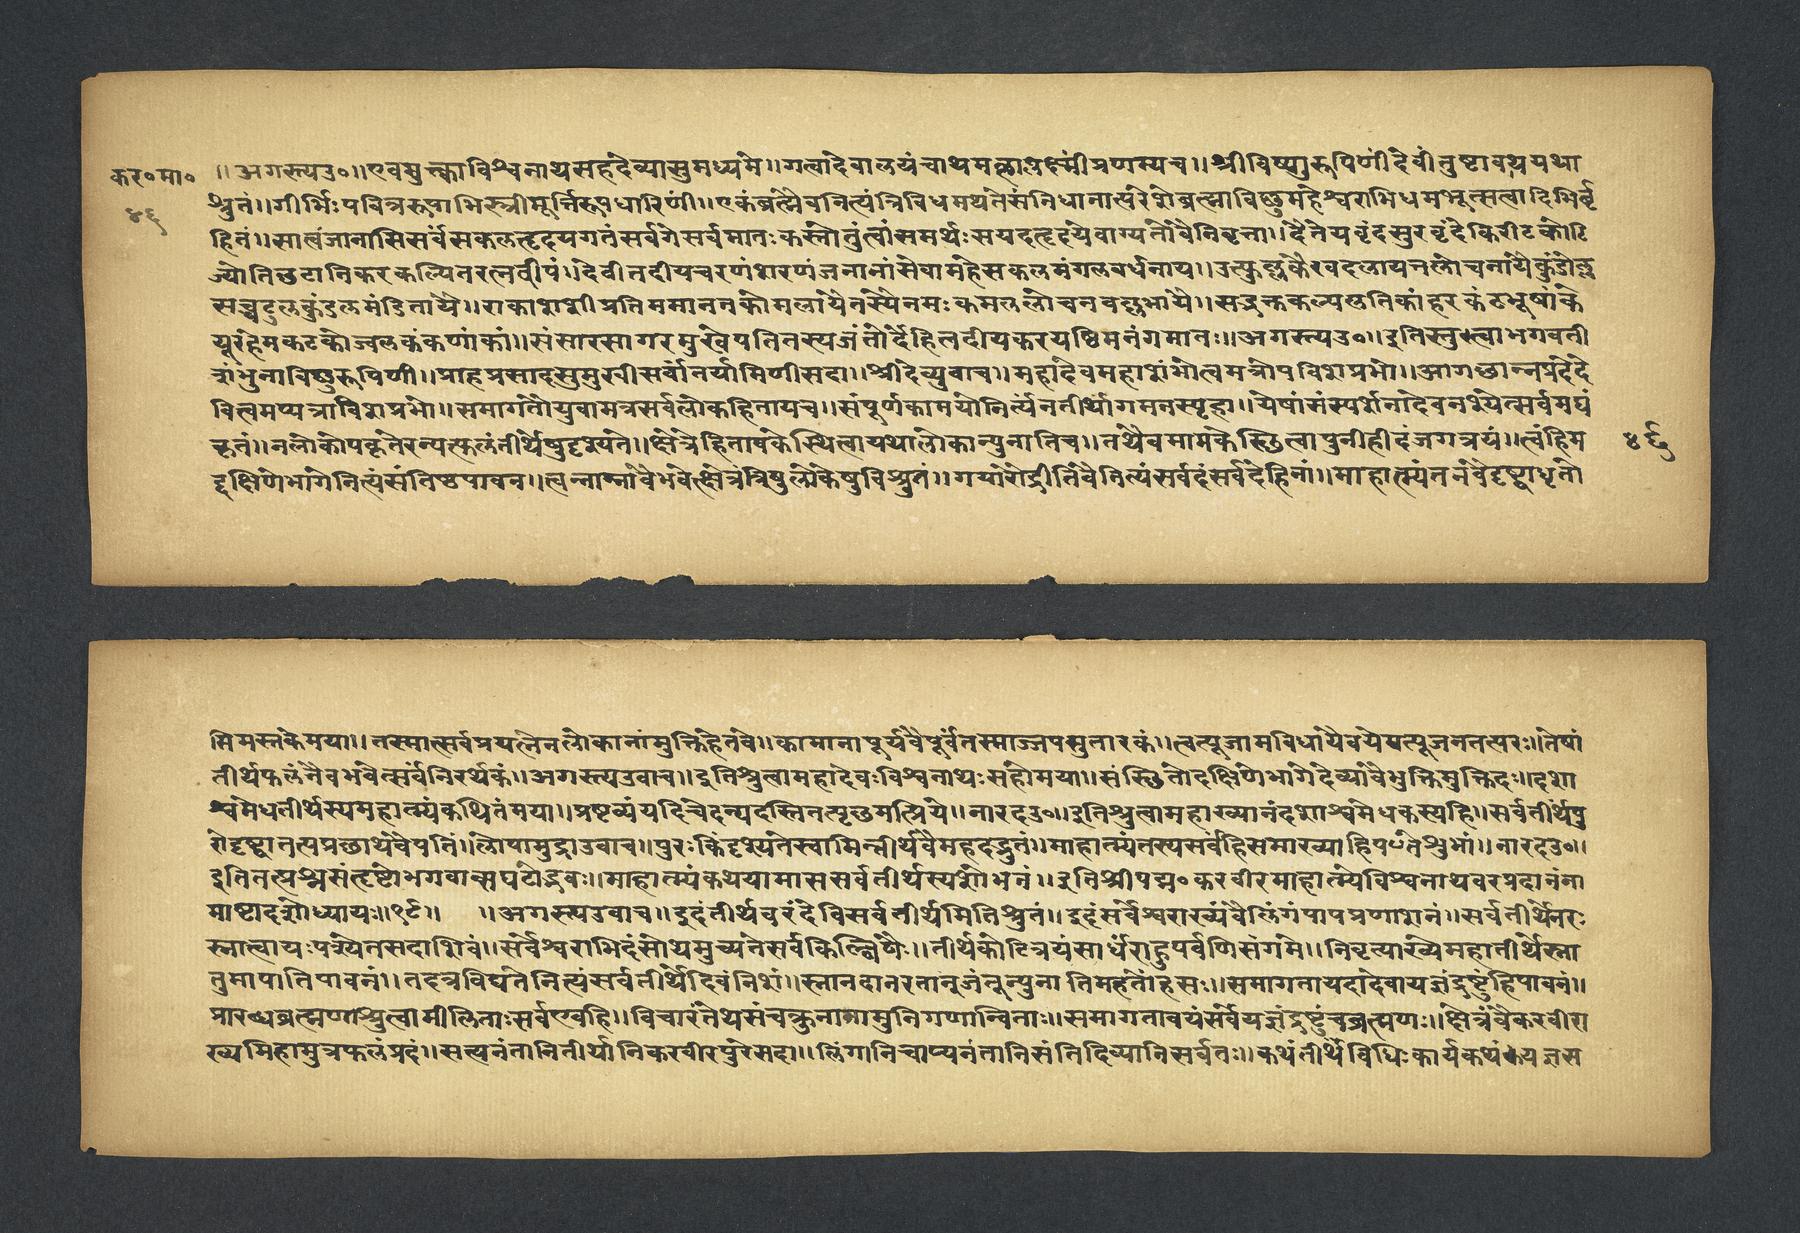 कर॰मा॰
४६
॥अगस्त्यउ॰॥एवमुक्त्काविश्वनाथसहदेव्यासुमध्यमे॥गत्वादेवालयंचाथमत्छालक्ष्मींप्रणम्यच॥श्रीविष्णुरूपिणींदेवींतुष्टावथयथा
श्रुतं॥गीर्भिःपवित्ररूपाभिस्त्रीमूर्त्तिरूपधारिणी॥एकंब्रह्मैवनित्यंत्रिविधमथतेसंनिधानात्परेशेब्रह्माविष्णुमहेश्वराभिधमभूत्सत्वादिभिर्बृ
हितं॥सात्वंजानासिसर्वंसकलहृदयगतंसर्वगेसर्वमातःकस्तोतुंत्वांसमर्थःसयदहृदयेवाग्यतोवैनिवृत्ता॥दैतेयवृंदसुरवृंदकिरीटकोटि
ज्योतिछटानिकरकल्पितरत्नदीपं॥देवीतदीयचरणंशरणंजनानांसेवामहेसकलमंगलवर्धनाय॥उत्फुल्लकैरवदलायतलोचनायैकुंडोल्ल
सच्चटुलकुंडलमंडितायै॥राकाशशीप्रतिममाननकोमलायैतस्यैनमःकमललोचनवल्लभायै॥सद्भक्तकल्पलतिकांहरकंठभूषांके
यूरहेमकटकोज्वलकंकणांकां॥संसारसागरमुखेपतितस्यजंतोर्देहित्वदीयकरयष्ठिमनंगमातः॥अगस्त्यउ॰॥इतिस्तुत्वाभगवती
शंभुनाविष्णुरूपिणी॥प्राहप्रसादसुमुखीसर्वांतर्यामिणीसदा॥श्रीदेव्युवाच॥महादेवमहाशंभोत्वमत्रोपविशप्रभो॥आगछान्नप्रदेदे
वित्वमप्यत्राविशप्रभो॥समागतोयुवामत्रसर्वलोकहितायच॥संपूर्णकामयोनित्यंनतीर्थागमनस्पृहा॥येषांसंस्पर्शनादेवनश्येत्सर्वमघं
कृतं॥नलोकोपकृतेरन्यत्फलंतीर्थेषुदृश्यते॥क्षेत्रेहितापकेस्थित्वायथालोकान्पुनातिच॥तथैवमामकेस्छित्वापुनीहीदंजगत्रयं॥त्वंहिम
द्दक्षिणेभागेनित्यंसंतिष्ठपावन॥त्वन्नाम्नावैभवेत्क्षेत्रंत्रिषुलोकेषुविश्रुतं॥गयारोद्रीतिवैनित्यंसर्वदंसर्वदेहिनां॥माहात्म्यंतत्रवैदृष्ट्वाधृतो
४६
मिमस्तकेमया॥तस्मात्सर्वप्रयत्नेनलोकानांमुक्तिहेतवे॥कामानापूर्यवैपूर्वंतस्माज्जपसुतारकं॥त्वत्पूजामविधायैवयेमत्पूजनतत्परः॥तेषां
तीर्थफलंनैवभवेत्सर्वनिरर्थकं॥अगस्त्यउवाच॥इतिश्रुत्वामहादेवःविश्वनाथःसहोमया॥संस्छितोदक्षिणेभागेदेव्यावैभुक्तिमुक्तिदः॥दशा
श्वमेधतीर्थस्यमहात्म्यंकथितंमया॥प्रष्टव्यंयदिचेदन्यदस्तितत्पृछमत्प्रिये॥नारदउ॰॥इतिश्रुत्वामहाख्यानंदशाश्वमेधकस्यहि॥सर्वतीर्थपु
रोदृष्ट्वातत्पप्रछाथवैपतिं॥लोपामुद्राउवाच॥पुरःकिंदृश्यतेस्वामिन्तीर्थंवैमहदद्भुतं॥माहात्म्यंतस्यसर्वंहिसमाख्याहिपततेशुभां॥नारदउ॰॥
इतितत्प्रश्नसंतृष्टोभगवान्सघटोद्भवः॥माहात्म्यंकथयामाससर्वतीर्थस्यशोभनं॥इतिश्रीपद्म॰करवीरमाहात्म्येविश्वनाथवरप्रदानंना
माष्टादशोध्यायः॥१८॥ ॥अगस्त्यउवाच॥इदंतीर्थवरंदेविसर्वतीर्थमितिश्रुतं॥इदंसर्वेश्वराख्यंवैलिंगंपापप्रणाशनं॥सर्वतीर्थेनरः
स्नात्वायःपश्येतसदाशिवं॥सर्वेश्वराभिदंसोथमुच्यतेसर्वकिल्बिषैः॥तीर्थकोटित्रयंसार्धंराहुपर्वणिसंगमे॥निवृत्याख्येमहातीर्थेस्ना
तुमापातिपावनं॥तदत्रविद्यतेनित्यंसर्वतीर्थेदिवंनिशं॥स्नानदानरतानृजंतून्पुनातिमहतोहसः॥समागतायदादेवायज्ञंद्रष्टुंहिपावनं॥
प्रारब्धंब्रह्मणाश्रुत्वामीलिताःसर्वएवहि॥विचारंतेथसंचक्रुनानामुनिगणान्विताः॥समागतावयंसर्वेयज्ञंद्रष्टुंचब्रह्मणः॥क्षेत्रंवैकरवीरा
ख्यमिहामुत्रफलंप्रदं॥सत्यनंतानितीर्थानिकरवीरपुरेसदा॥लिंगानिचाप्यनंतानिसंतिदिव्यानिसर्वतः॥कथंतीर्थेविधिःकार्यकथंयज्ञस